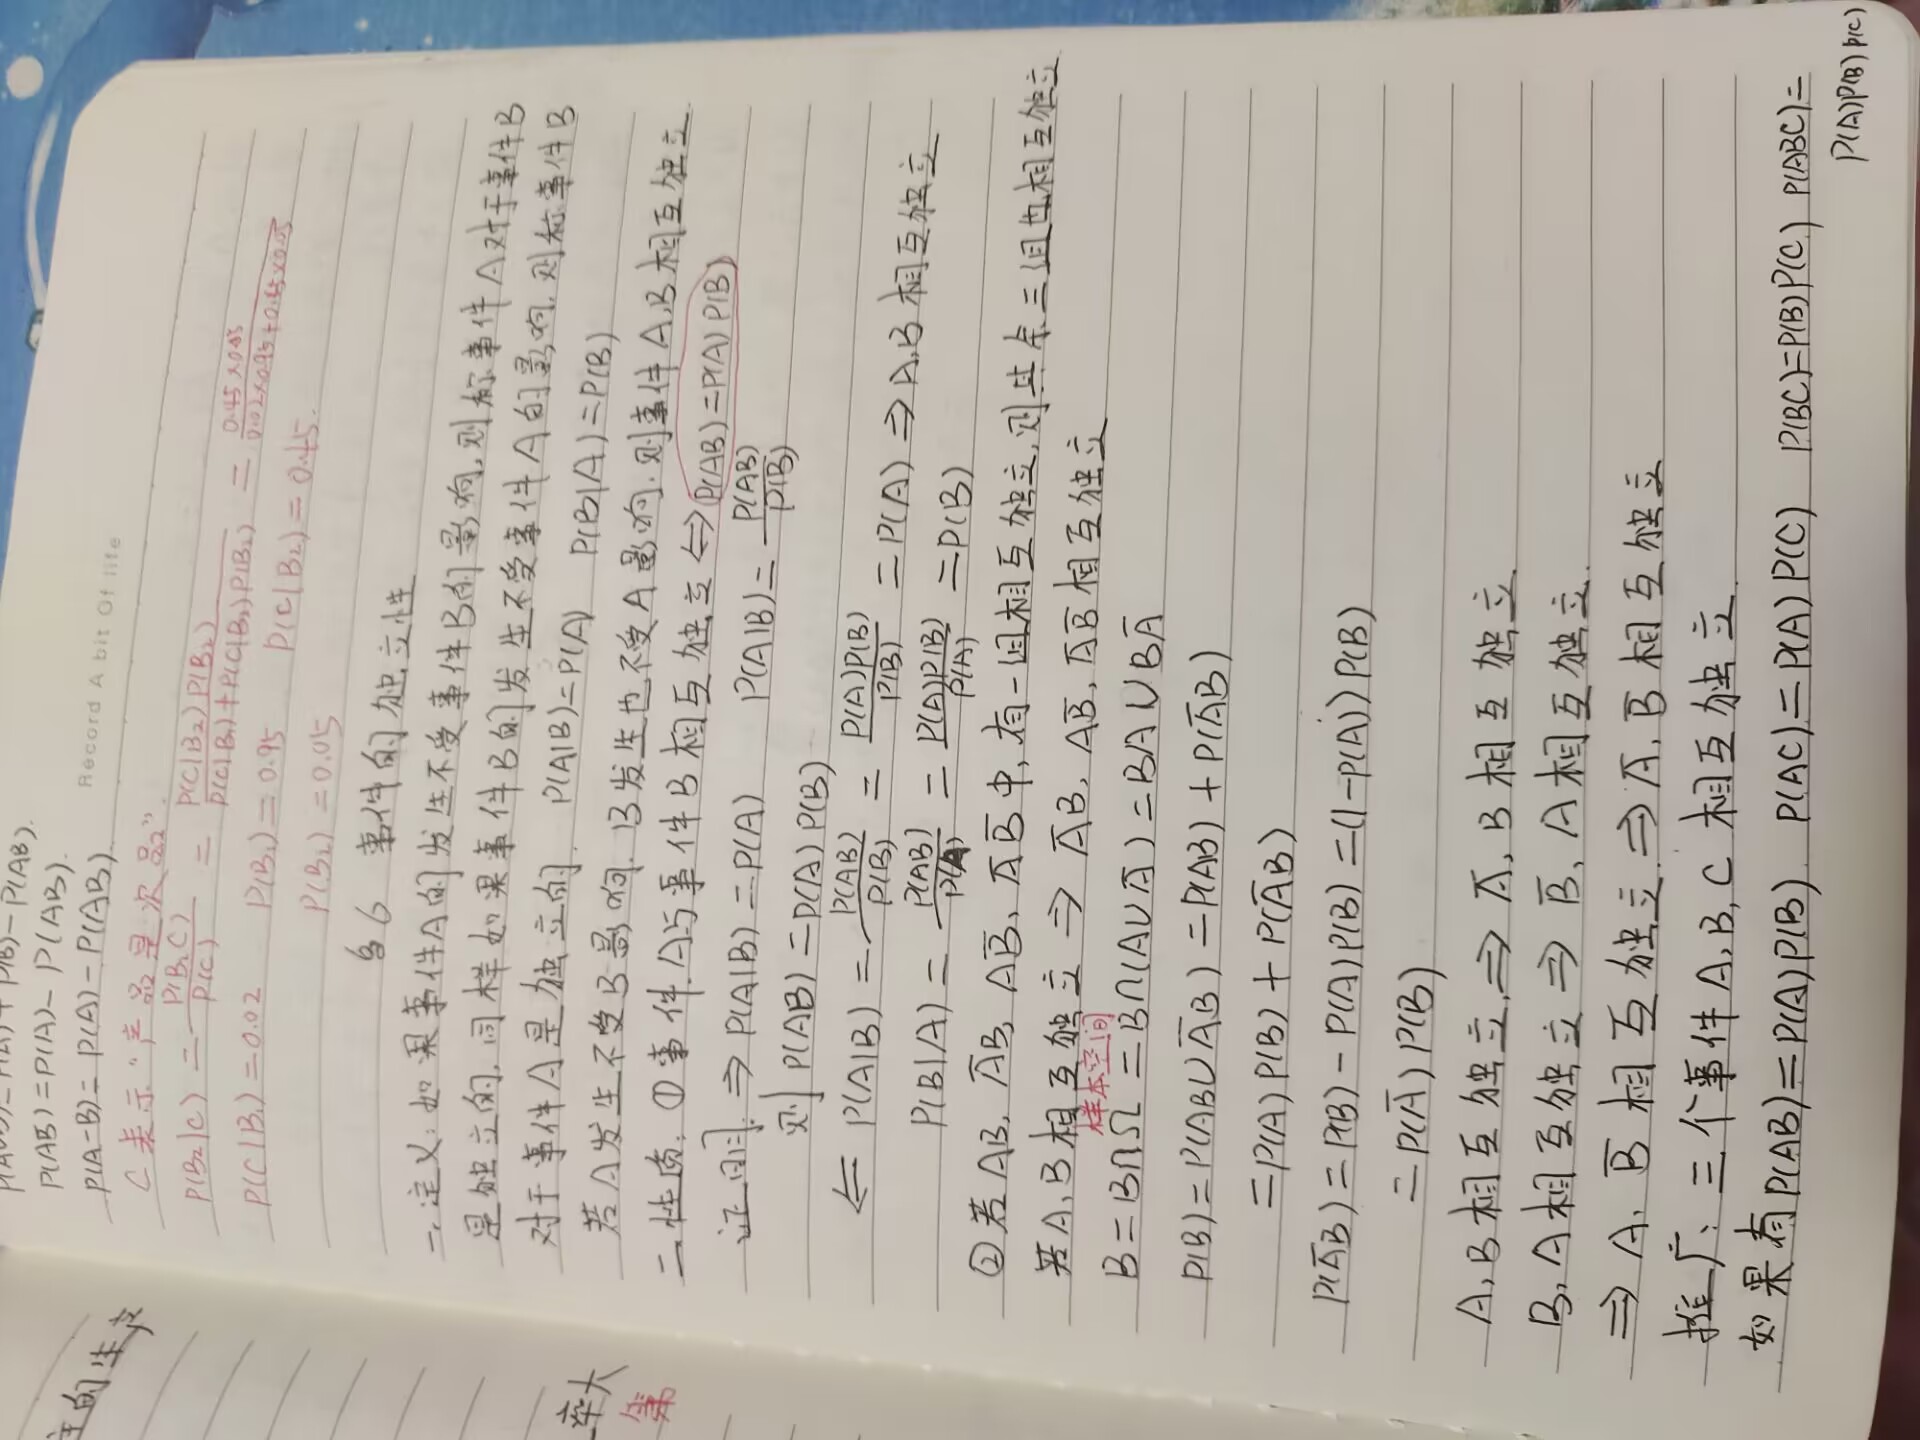 P(AB)=P(A)-P(AB).
P(A-B)=P(A)-P(AB)
Record A bit Of life
C表示“产品是次品”.
P(B₂|C)=P(B₂C)/P(C)=P(C|B₂)P(B₂)/P(C|B₁)+P(C|B₂)P(B₂)=0.45×0.05/0.02×0.95+0.45×0.05
P(C|B₁)=0.02 P(B₁)=0.95 P(C|B₂)=0.45.
P(B₂)=0.05
§6 事件的独立性
一、定义:如果事件A的发生不受事件B的影响,则称事件A对于事件B
是独立的,同样如果事件B的发生不受事件A的影响,则称事件B
对于事件A是独立的. P(A|B)=P(A) P(B|A)=P(B)
若A发生不受B影响,B发生也不受A影响,则事件A,B相互独立
二、性质:①事件A与事件B相互独立⇔P(AB)=P(A)P(B)
证明:⇒P(A|B)=P(A) P(A|B)=P(AB)/P(B)
则P(AB)=P(A)P(B)
⇐ P(A|B)=P(AB)/P(B)=P(A)P(B)/P(B)=P(A)⇒A,B相互独立
P(B|A)=P(AB)/P(A)=P(A)P(B)/P(A)=P(B)
②若AB, A̅B, AB̅, A̅B̅中,有一组相互独立,则其余三组也相互独立
若A,B相互独立⇒A̅B, AB̅, A̅B̅相互独立
样本空间
B=B∩Ω=B∩(A∪A̅)=BA∪BA̅
P(B)=P(AB∪A̅B)=P(AB)+P(A̅B)
=P(A)P(B)+P(A̅B)
P(A̅B)=P(B)-P(A)P(B)=(1-P(A))P(B)
=P(A̅)P(B)
A,B相互独立⇒A̅,B相互独立
B,A相互独立⇒B̅,A相互独立.
⇒A,B̅相互独立⇒A̅,B̅相互独立
推广:三个事件A,B,C相互独立
如果有P(AB)=P(A)P(B) P(AC)=P(A)P(C) P(BC)=P(B)P(C) P(ABC)=
P(A)P(B)P(C)